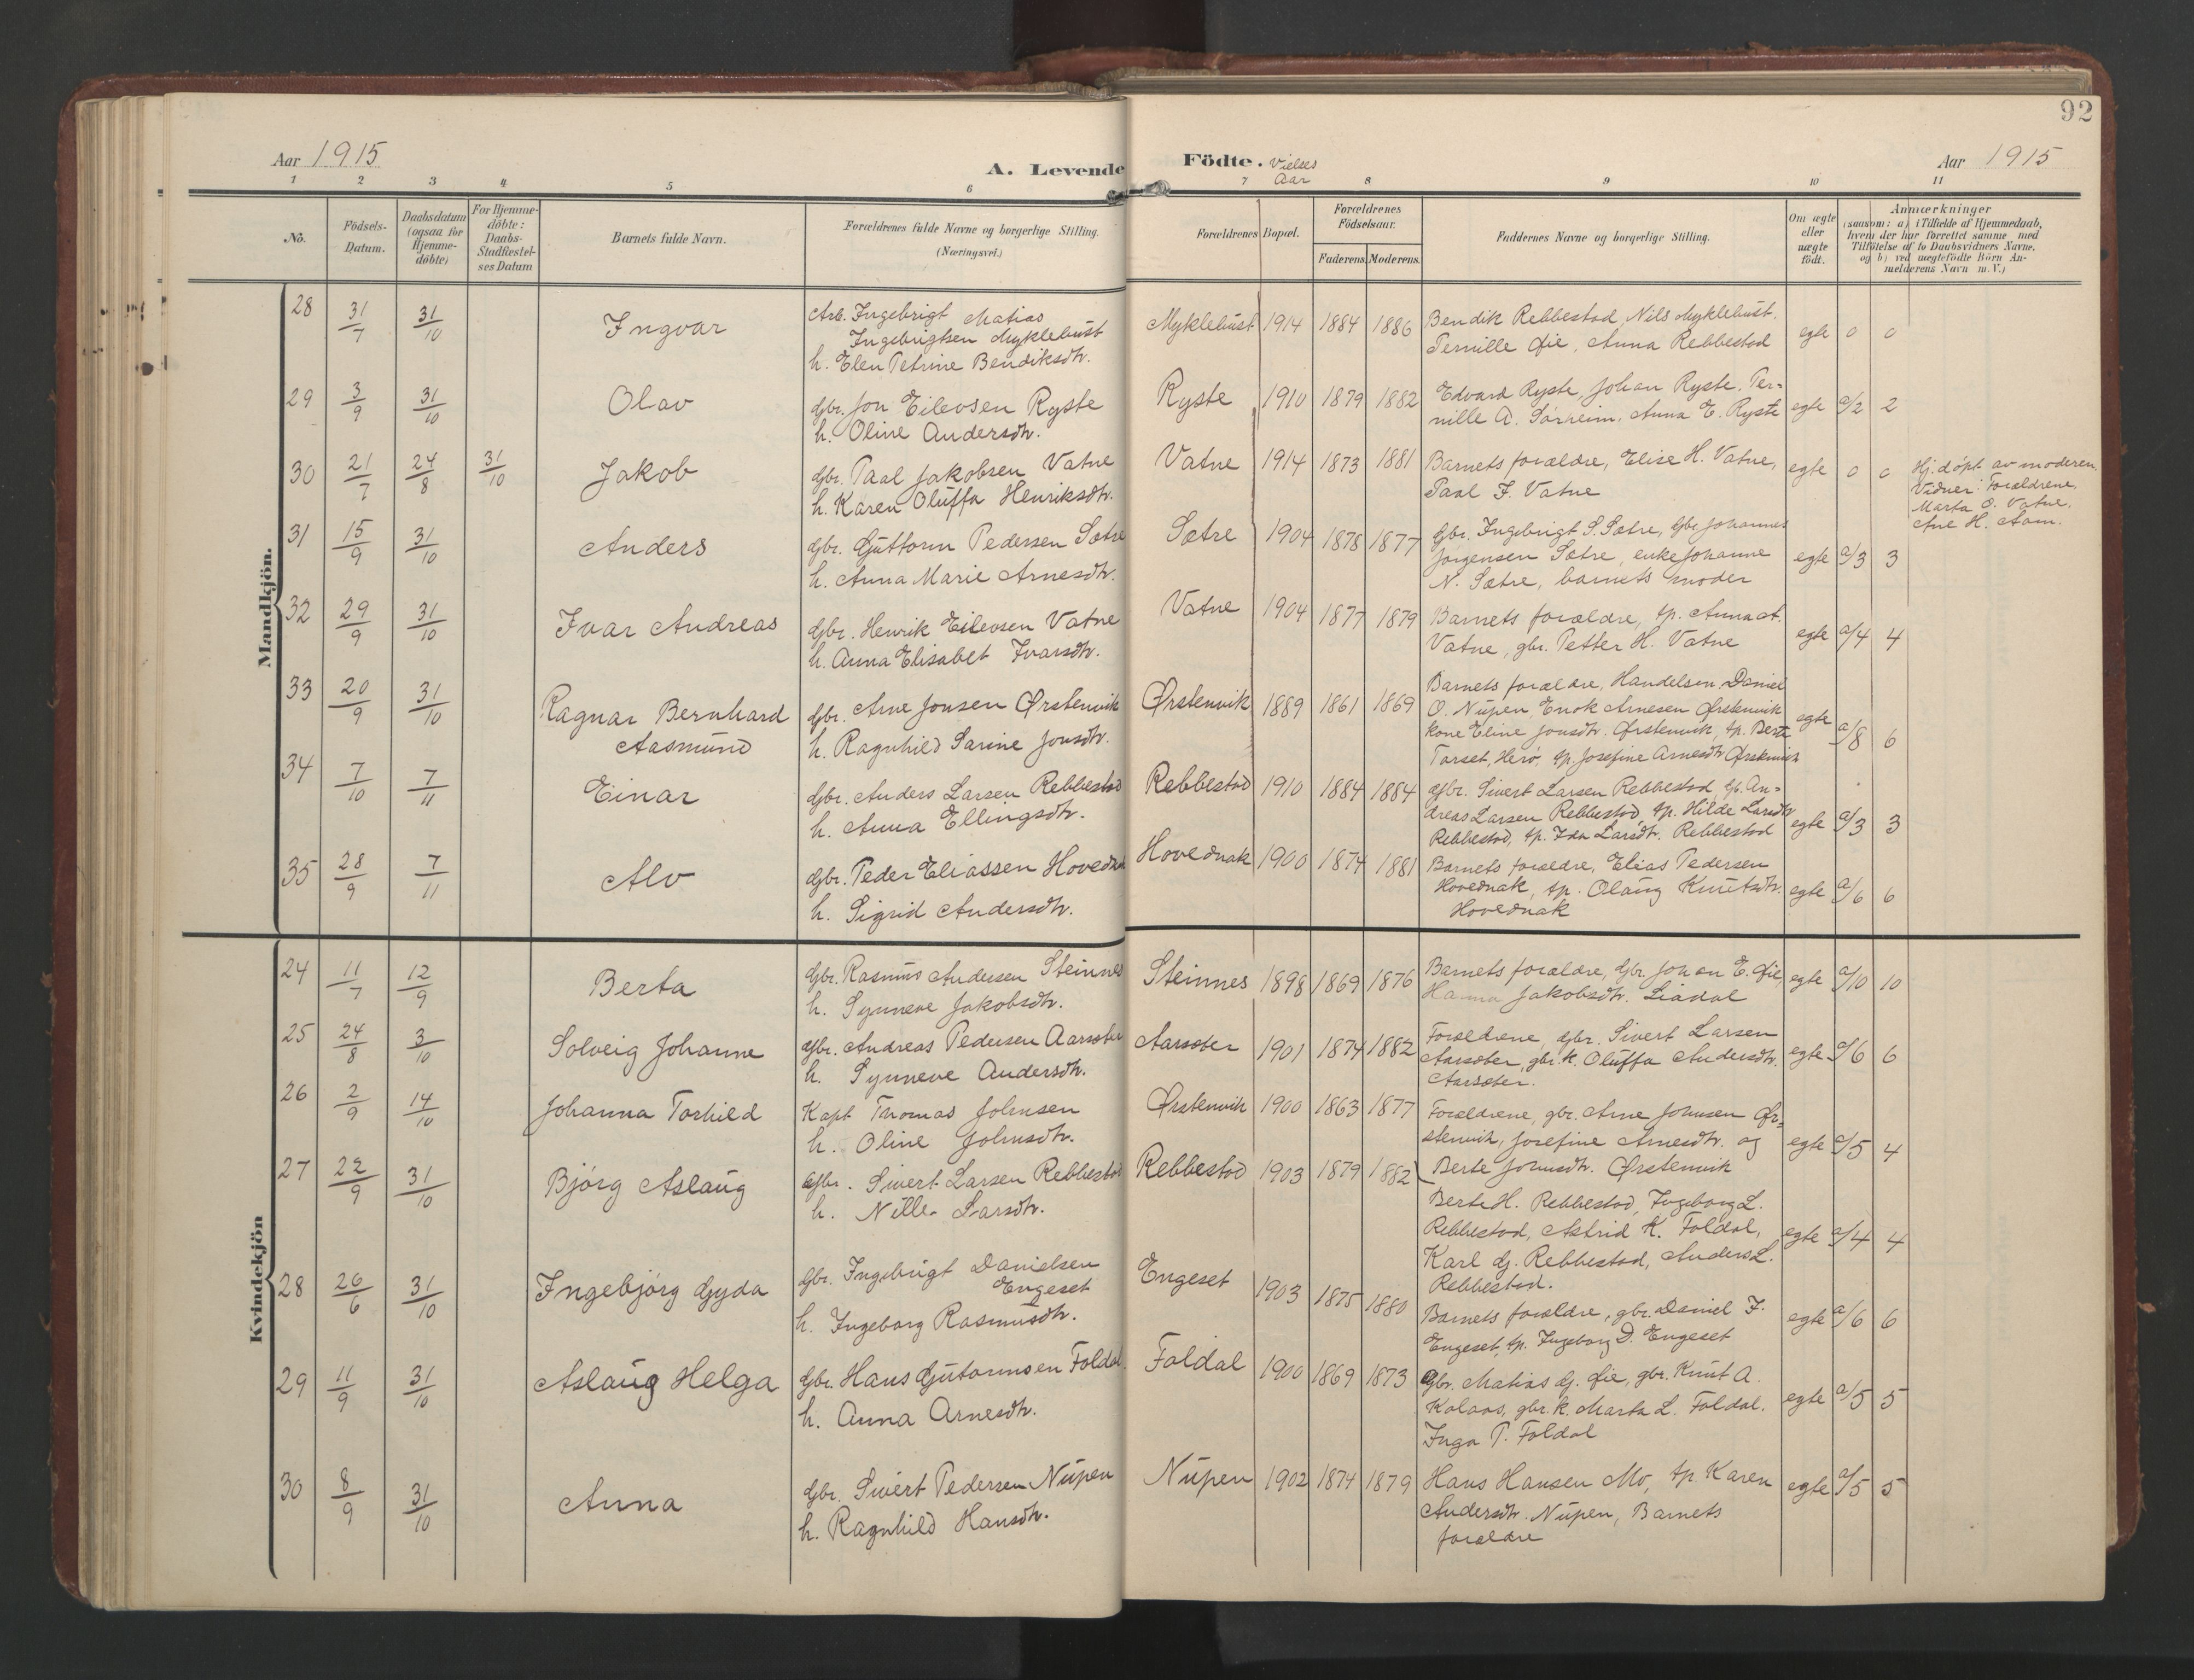 92
Aar 1915
A. Levende Födte. Vielses Aar
Aar 1915
1 2 3 4 5 6 7 8 9 10 11
No.
Födsels-Datum.
Daabsdatum (ogsaa for Hjemme-döbte)
For Hjemme-döbte: Daabs-Stadfæstel-ses Datum
Barnets fulde Navn.
Forældrenes fulde Navne og borgerlige Stilling. (Næringsvei.)
Forældrenes Bopæl.
Forældrenes Födselsaar.
Faderens. Moderens.
Faddernes Navne og borgerlige Stilling.
Om ægte eller uægte födt.
Anmærkninger
(saasom: a) i Tilfælde af Hjemmedaab,
hvem der har forrettet samme med
Tilföielse af to Daabsvidners Navne,
og b) ved uægtefödte Börn An-
melderens Navn m. V.)
Mandkjön.
28 31/7 31/10 Ingvar
Arb. Ingebrigt Matias
Ingebrigtsen Myklebust
h. Elen Petrine Bendiksdtr.
Myklebust 1914 1884 1886
Bendik Rebbestad, Nils Myklebust.
Pernille Øie, Anna Rebbestad
egte 0 0
29 3/9 31/10 Olav
Gbr. Jon Eilevsen Ryste
h. Oline Andersdtr.
Ryste 1910 1879 1882
Edvard Ryste, Johan Ryste, Per-
nille A. Sørheim, Anna E. Ryste
egte a/2 2
30 21/7 24/8 31/10 Jakob
Gbr. Paal Jakobsen Vatne
h. Karen Oluffa Henriksdtr.
Vatne 1914 1873 1881
Barnets forældre, Elise H. Vatne,
Paal J. Vatne
egte 0 0
Hj.døpt av moderen.
Vidner: Forældrene,
Marta O. Vatne.
Ane H. Aam.
31 15/9 31/10 Anders
Gbr. Guttorm Pedersen Sætre
h. Anna Marie Arnesdtr.
Sætre 1904 1878 1877
Gbr. Ingebrigt S. Sætre, Gbr Johannes
Jørgensen Sætre, enke Johanne
N. Sætre, barnets moder
egte a/3 3
32 29/9 31/10 Ivar Andreas
Gbr. Henrik Eilevsen Vatne
h. Anna Elisabet Ivarsdtr.
Vatne 1904 1877 1879
Barnets forældre, tp. Anna A.
Vatne, gbr. Petter H. Vatne
egte a/4 4
33 20/9 31/10 Ragnar Bernhard
Aasmund
Gbr. Arne Jonsen Ørstenvik
h. Ragnhild Sarine Jonsdtr.
Ørstenvik 1889 1861 1869
Barnets forældre, Handelsm. Daniel
O. Nupen, Enok Arnesen Ørstenvik
kone Eline Jonsdtr. Ørstenvik, tp. Berte
Torset, Herø, tp. Josefine Arnesdtr Ørstenvik
egte a/8 6
34 7/10 7/11 Einar
Gbr. Anders Larsen Rebbestad
h. Anna Ellingsdtr.
Rebbestad 1910 1884 1884
Gbr. Sivert Larsen Rebbestad, Gb. An-
dreas Larsen Rebbestad, tp. Hilde Larsdtr
Rebbestad, tp. Ida Larsdtr. Rebbestad
egte a/3 3
35 28/9 7/11 Alv
Gbr. Peder Eliassen Hovednak
h. Sigrid Andersdtr.
Hovednak 1900 1874 1881
Barnets forældre, Elias Pedersen
Hovednak, tp. Olaug Knutsdtr.
Hovednak
egte a/6 6
Kvindekjön
24 11/7 12/9 Berta
Gbr. Rasmus Andersen Steinnes
h. Synneve Jakobsdtr.
Steinnes 1898 1869 1876
Barnets forældre, Gbr. Johan E. Øie,
Hanna Jakobsdtr. Liadal
egte a/10 10
25 24/8 3/10 Solveig Johanne
Gbr. Andreas Pedersen Aarsæter
h. Synneve Andersdtr.
Aarsæter 1901 1874 1882
Forældrene, gbr. Sivert Larsen
Aarsæter, gbr. k. Oluffa Andersdtr.
Aarsæter.
egte a/6 6
26 2/9 14/10 Johanna Torhild
Kapt Thomas Johnsen
h. Oline Johnsdtr.
Ørstenvik 1900 1863 1877
Forældrene, gbr. Arne Johnsen Ør-
stenvik, Josefine Arnesdtr. og
Berte Johnsdtr. Ørstenvik
egte a/5 4
27 22/9 31/10 Bjørg Aslaug
Gbr. Sivert Larsen Rebbestad
h. Nille Larsdtr.
Rebbestad 1903 1879 1882
Berte H. Rebbestad, Ingeborg L.
Rebbestad, Astrid K. Foldal,
Karl Gj. Rebbestad, Anders L.
Rebbestad.
egte a/4 4
28 26/6 31/10 Ingebjørg Gyda
Gbr. Ingebrigt Danielsen
Engeset
h. Ingeborg Rasmusdtr.
Engeset 1903 1875 1880
Barnets forældre, gbr. Daniel I.
Engeset, tp. Ingeborg D. Engeset
egte a/6 6
29 11/9 31/10 Aslaug Helga
Gbr. Hans Gutormsen Foldal
h. Anna Arnesdtr.
Foldal 1900 1869 1873
Gbr. Matias Gj. Øie, gbr. Knut A.
Kolaas, gbr. k. Marta L. Foldal,
Inga P. Foldal
egte a/5 5
30 8/9 31/10 Anna
Gbr. Sivert Pedersen Nupen
h. Ragnhild Hansdtr.
Nupen 1902 1874 1879
Hans Hansen Mo, tp. Karen
Andersdtr. Nupen, Barnets
forældre
egte a/5 5